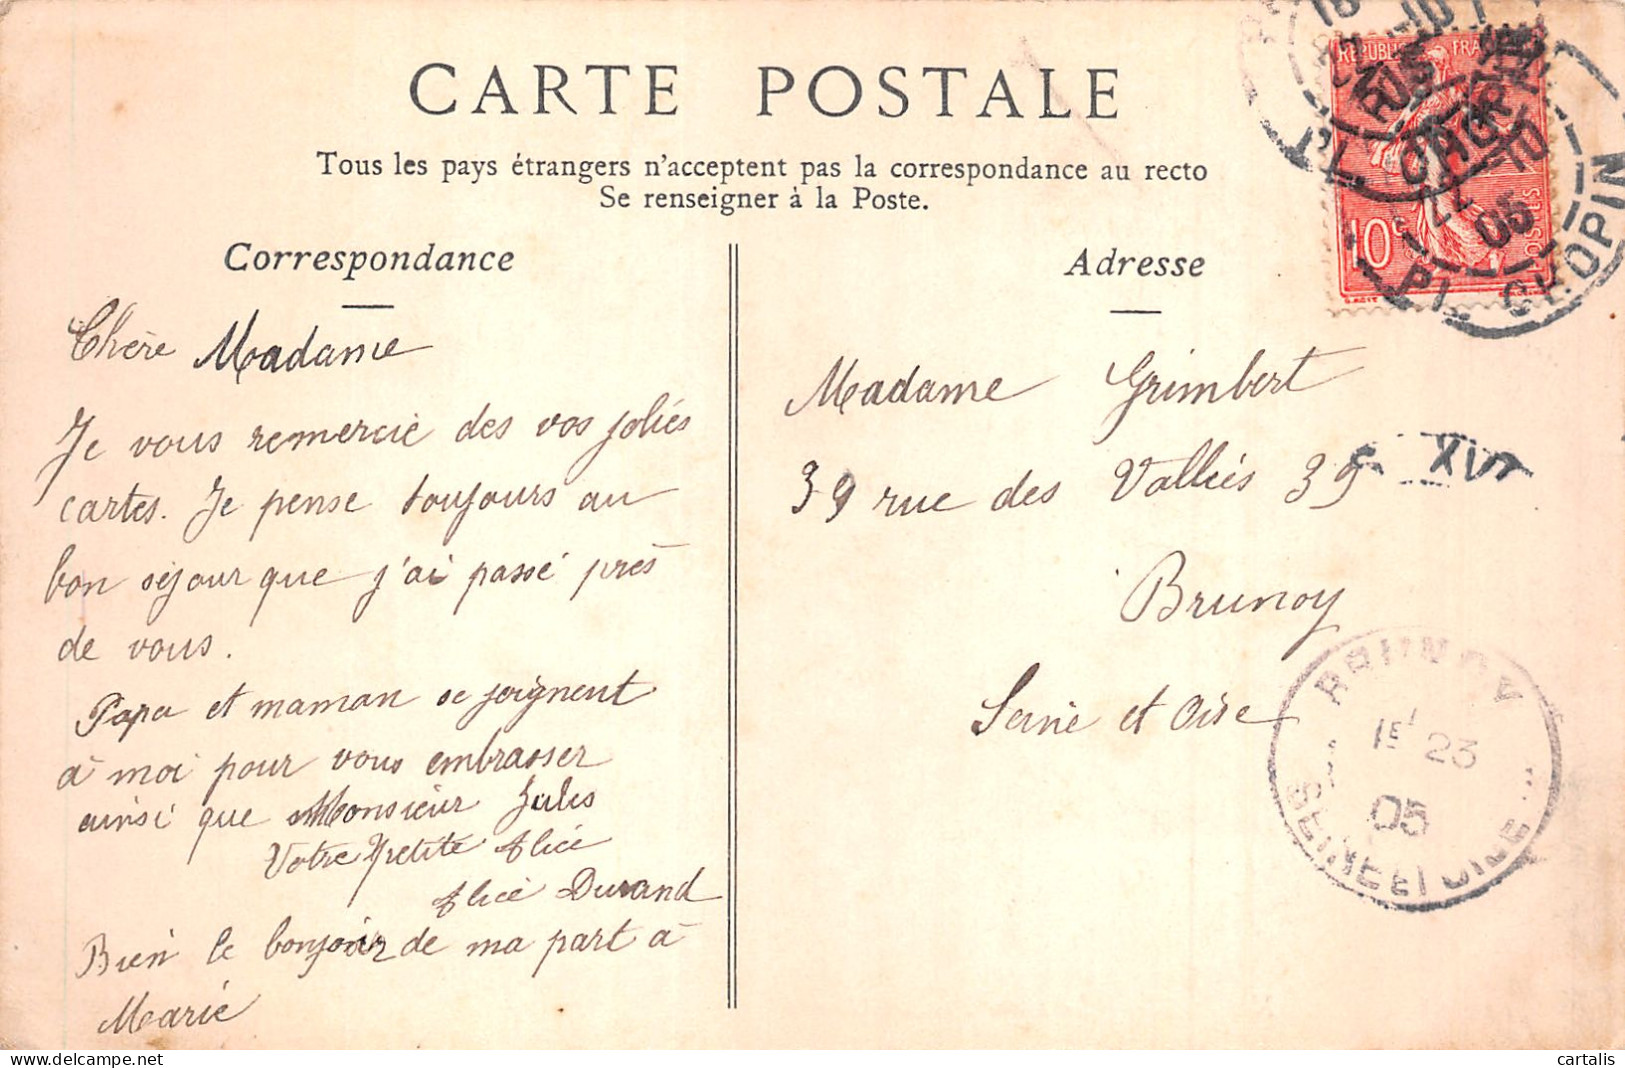 CARTE POSTALE
Tous les pays étrangers n'acceptent pas la correspondance au recto
Se renseigner à la Poste.
Correspondance
Chère Madame
Je vous remercie des vos jolies
cartes. Je pense toujours au
bon séjour que j'ai passé près
de vous.
Papa et maman se joignent
à moi pour vous embrasser
ainsi que Monsieur Jules
Votre petite Alice
Alice Durand
Bien le bonjour de ma part à
Marie
Adresse
Madame Grimbert
39 rue des Vallées 39
Brunoy
Seine et Oise
REPUBLIQUE FRA
10c
POSTES
PL. CHOPIN
05
XVI
BRUNOY
23
05
SEINE ET OISE
delcampe.net
cartalis